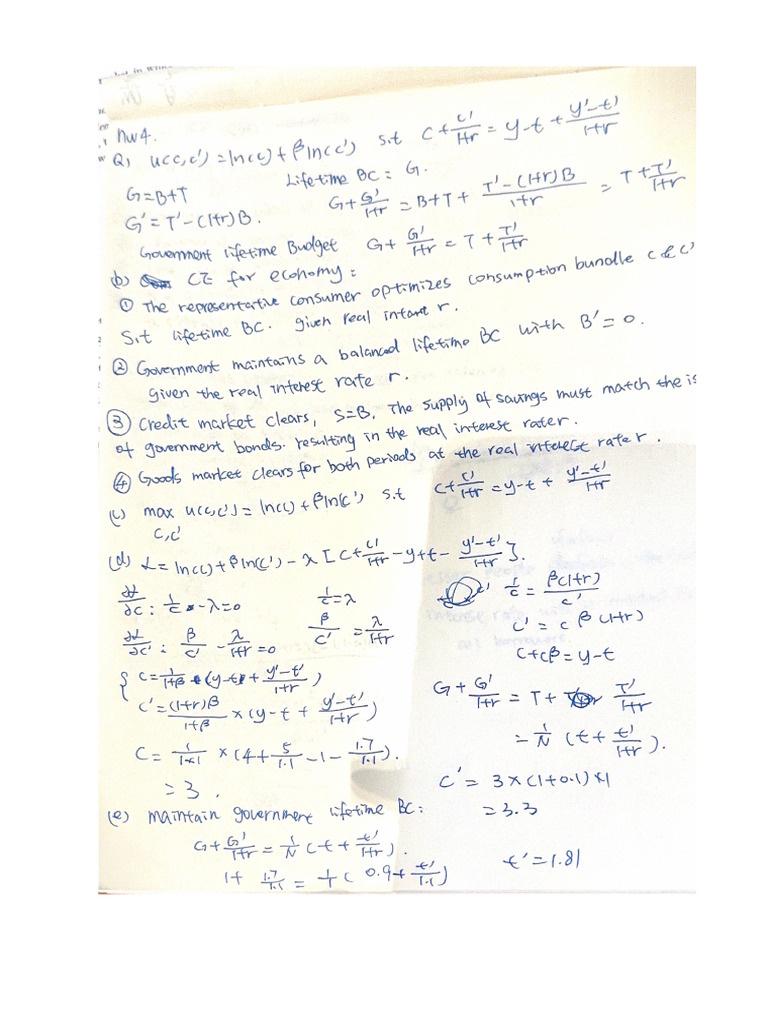 HW4.
Q1 u(c,c') = ln(c) + βln(c') s.t c + c'/1+r = y-t + y'-t'/1+r
Lifetime BC: G.
G=B+T
G'=T'-(1+r)B.
G + G'/1+r = B+T + T'-(1+r)B/1+r = T + T'/1+r
Government lifetime Budget G + G'/1+r = T + T'/1+r
(b) CE for economy:
① The representative consumer optimizes consumption bundle c & c'
s.t lifetime BC. given real interest r.
② Government maintains a balanced lifetime BC with B'=0.
given the real interest rate r.
③ Credit market clears, S=B, The supply of savings must match the is
of government bonds. resulting in the real interest rate r.
④ Goods market clears for both periods at the real interest rate r.
(c) max u(c,c') = ln(c) + βln(c') s.t c + c'/1+r = y-t + y'-t'/1+r
c,c'
(d) L = ln(c) + βln(c') - λ[c + c'/1+r - y+t - y'-t'/1+r].
∂L/∂c : 1/c - λ=0 1/c = λ
∂L/∂c' : β/c' - λ/1+r = 0 β/c' = λ/1+r
1/c = β(1+r)/c'
c' = c β (1+r)
c+cβ = y-t
{ c = 1/1+β (y-t + y'-t'/1+r)
c' = (1+r)β/1+β × (y-t + y'-t'/1+r)
G + G'/1+r = T + T'/1+r
= 1/N (t + t'/1+r).
C = 1/1+1 × (4 + 5/1.1 - 1 - 1.7/1.1).
= 3.
c' = 3×(1+0.1)×1
= 3.3
(e) maintain government lifetime BC:
G + G'/1+r = 1/N (t + t'/1+r).
1+ 1.7/1.1 = 1/1 ( 0.9 + t'/1.1)
t' = 1.81